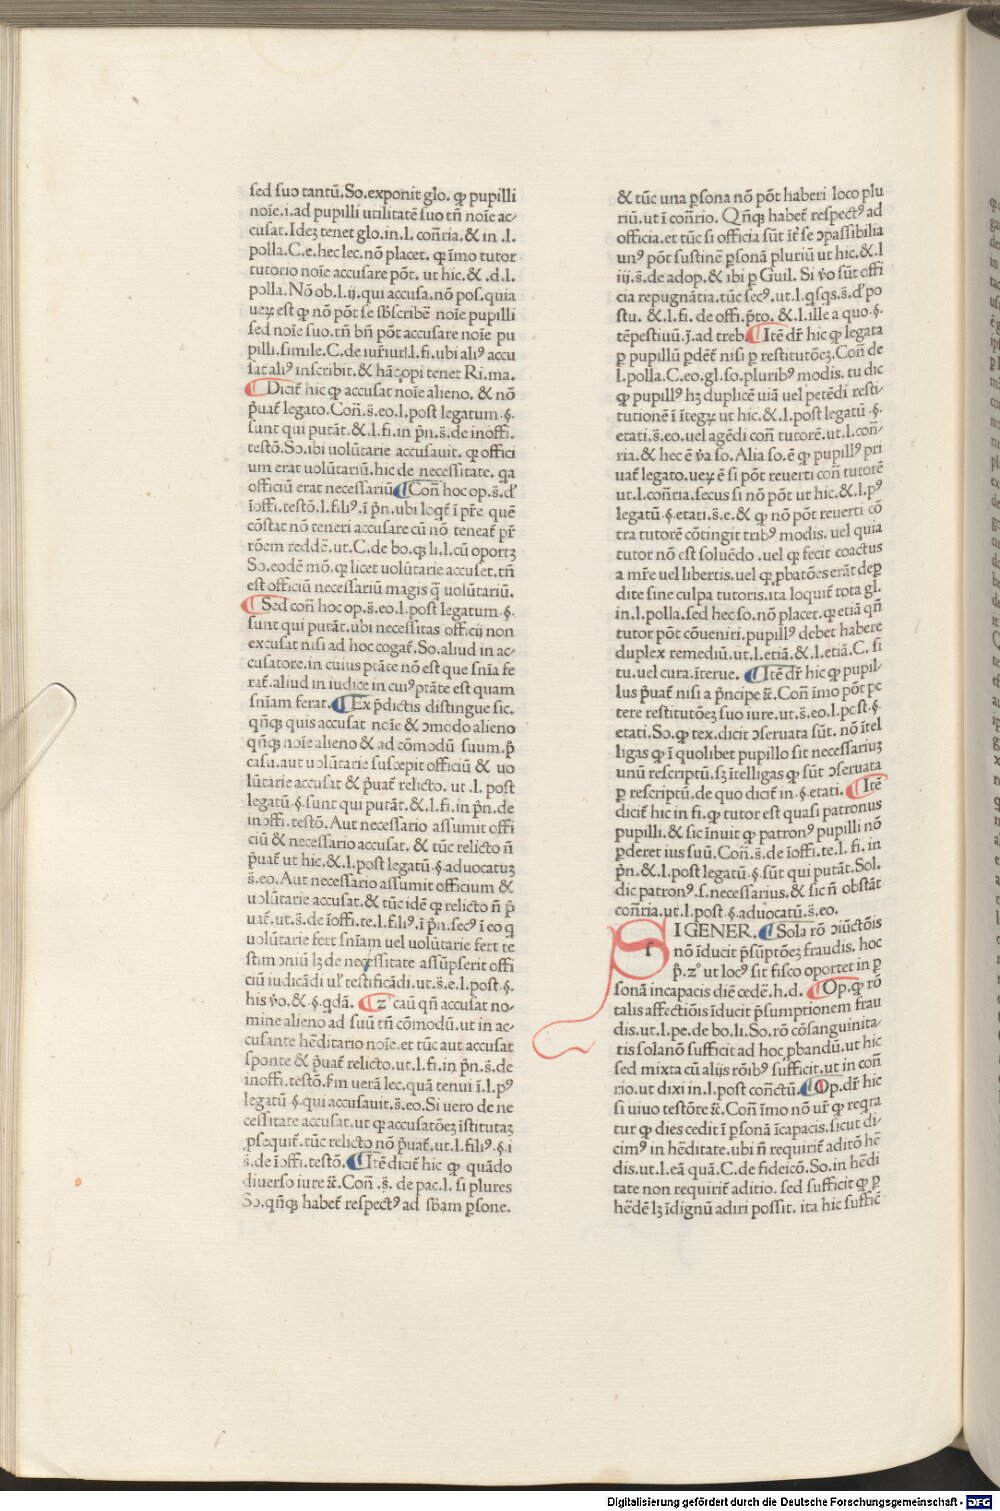 sed suo tantū.So.exponit glo. ꝙ pupilli
noīe.i.ad pupilli utilitatē suo tñ noīe ac-
cusat.Ideʒ tenet glo.in.l. coñria.& in .l.
polla.C.e.hec lec.nō placet. ꝙ īmo tutor
tutorio noīe accusare pōt. ut hic.& .d.l.
polla. Nō ob.l.ij.qui accusa.nō pos.quia
ueꝝ est ꝙ nō pōt se sb̄scribē noīe pupilli
sed noīe suo.tñ bñ pōt accusare noīe pu
pilli.simile.C.de iur̄iurl.l.fi.ubi aliꝰ accu
sat aliꝰ inscribit.& hāc opi tenet Ri.ma.
¶Dicit̄ hic ꝙ accusat noīe alieno. & nō
p̄uat̄ legato.Coñ.s̄.eo.l.post legatum.§.
sunt qui putāt.& .l.fi.in p̄n.s̄.de inoffi.
testō.So.ibi uolūtarie accusauit. ꝙ offici
um erat uolūtariū.hic de necessitate. qa
officiū erat necessariū¶Coñ hoc op.s̄.d̄
īoffi.testō.l.filiꝰ.ī p̄n.ubi loqt̄ ī pr̄e quē
cōstat nō teneri accusare cū nō teneat̄ pr̄
rōem reddē.ut.C.de bo.qs li.l.cū oportʒ
So.eodē mō.ꝙ licet uolūtarie accuset.tñ
est officiū necessariū magis q̄ uolūtariū.
¶Sed coñ hoc op.s̄.eo.l.post legatum.§.
sunt qui putāt.ubi necessitas officij non
excusat nisi ad hoc cogat̄.So.aliud in ac-
cusatore.in cuius ptāte nō est que snīa fe
rat̄.aliud in iudice in cuiꝰ ptāte est quam
snīam ferat.¶Ex p̄dictis distingue sic.
qñqꝫ quis accusat noīe & ɔmodo alieno
qñqꝫ noīe alieno & ad cōmodū suum.p̄
casu.aut uolūtarie suscepit officiū & uo
lūtarie accusat & p̄uat̄ relicto. ut .l. post
legatū.§.sunt qui putāt.& .l.fi.in p̄n.de
inoffi.testō.Aut necessario assumit offi
ciū & necessario accusat. & tūc relicto ñ
p̄uat̄ ut hic.& .l.post legatū.§.aduocatuʒ
s̄.eo.Aut necessario assumit officium &
uolūtarie accusat.& tūc idē ꝙ relicto ñ p̄
uat̄.ut.s̄.de īoffi.te.l.filiꝰ.ī p̄n.secꝰ ī eo q̄
uolūtarie fert snīam uel uolūtarie fert te
stimoniū lʒ de necessitate assūpserit offi
ciū iudicādi ul̄ testificādi.ut.s̄.e.l.post.§.
his v̄o.& .§.qdā. ¶z̄ caū qñ accusat no-
mine alieno ad suū tñ cōmodū.ut in ac-
cusante hēditario noīe.et tūc aut accusat
sponte & p̄uat̄ relicto.ut.l.fi.in p̄n.s̄.de
inoffi.testō.fm uerā lec.quā tenui ī.l.pꝰ
legatū.§.qui accusauit.s̄.eo.Si uero de ne
cessitate accusat.ut ꝙ accusatōeʒ īstitutaʒ
ꝑsequit̄.tūc relicto nō p̄uat̄.ut.l.filiꝰ.§.i
s̄.de īoffi.testō.¶Itē dicit̄ hic ꝙ quādo
diuerso iure ꝛc̄.Coñ .s̄. de pac.l. si plures
So.qñqꝫ habet̄ respectꝰ ad sb̄am ꝑsone.
& tūc una ꝑsona nō pōt haberi loco plu
riū.ut ī coñrio. Qñqꝫ habet̄ respectꝰ ad
officia.et tūc si officia sūt īt̄ se ɔpassibilia
unꝰ pōt sustinē ꝑsonā pluriū ut hic.& .l
iij.s̄.de adop.& ibi ꝑ Guil. Si v̄o sūt offi
cia repugnātia.tūc secꝰ.ut.l.qsqs.s̄.d̄ po
stu. & .l.fi.de offi.p̄to. & .l.ille a quo.§.
tēpestiuū.j̄.ad treb.¶Itē dr̄ hic ꝙ legata
ꝑ pupillū ꝑdēt̄ nisi ꝑ restitutōeʒ.Coñ de
l.polla.C.eo.gl.so.pluribꝰ modis. tu dic
ꝙ pupillꝰ hʒ duplicē uiā uel petēdi resti-
tutionē ī ītegꝝ ut hic.& .l.post legatū.§.
etati.s̄.eo.uel agēdi coñ tutorē.ut.l.coñ-
ria.& hec ē v̄a so.Alia so.ē ꝙ pupillꝰ pri
uat̄ legato.ueꝝ ē si pōt reuerti coñ tutorē
ut.l.coñria.secus si nō pōt ut hic.& .l.pꝰ
legatū.§.etati.s̄.e.& ꝙ nō pōt reuerti cō
tra tutorē cōtingit tribꝰ modis. uel quia
tutor nō est soluēdo .uel ꝙ fecit coactus
a mr̄e uel libertis.uel ꝙ ꝓbatōes erāt deꝑ
dite sine culpa tutoris.ita loquit̄ tota gl.
in.l.polla.sed hec so.nō placet.ꝙ etiā qñ
tutor pōt cōueniri.pupillꝰ debet habere
duplex remediū.ut.l.etiā.& .l.etiā.C. si
tu.uel cura.īterue. ¶Itē dr̄ hic ꝙ pupil-
lus p̄uat̄ nisi a p̄ncipe ꝛc̄.Coñ īmo pōt pe
tere restitutōeʒ suo iure.ut.s̄.eo.l.post.§.
etati.So.ꝙ tex.dicit ɔseruata sūt. nō ītel
ligas ꝙ ī quolibet pupillo sit necessariuʒ
unū rescriptū.sʒ ītelligas ꝙ sūt ɔseruata
ꝑ rescriptū.de quo dicit̄ in.§.etati. ¶Itē
dicit̄ hic in fi.ꝙ tutor est quasi patronus
pupilli.& sic īnuit ꝙ patronꝰ pupilli nō
ꝑderet ius suū.Coñ.s̄.de īoffi.te.l. fi. in
p̄n.& .l.post legatū.§.sūt qui putāt.Sol.
dic patronꝰ.s.necessarius.& sic ñ obstāt
coñria.ut.l.post.§.aduocatū.s̄.eo.
SI GENER.¶Sola rō ɔiūctōis
nō īducit p̄sūptōeʒ fraudis. hoc
p̄.zº ut locꝰ sit fisco oportet in ꝑ
sonā incapacis diē cedē.h.d. ¶Op.ꝙ rō
talis affectiōis īducit p̄sumptionem frau
dis.ut.l.pe.de bo.li.So.rō cōsanguinita-
tis sola nō sufficit ad hoc ꝓbandū.ut hic
sed mixta cū alijs rōibꝰ sufficit.ut in coñ
rio.ut dixi in.l.post coñctū.¶Op.dr̄ hic
si uiuo testōre ꝛc̄.Coñ īmo nō ur̄ ꝙ reqra
tur ꝙ dies cedit ī ꝑsonā īcapacis.sicut di-
cimꝰ in hēditate.ubi ñ requirit̄ aditō hē
dis.ut.l.eā quā.C.de fideicō.So.in hēdi
tate non requirit̄ aditio. sed sufficit ꝙ ꝑ
hēdē lʒ īdignū adiri possit. ita hic suffic̄
Digitalisierung gefördert durch die Deutsche Forschungsgemeinschaft - DFG